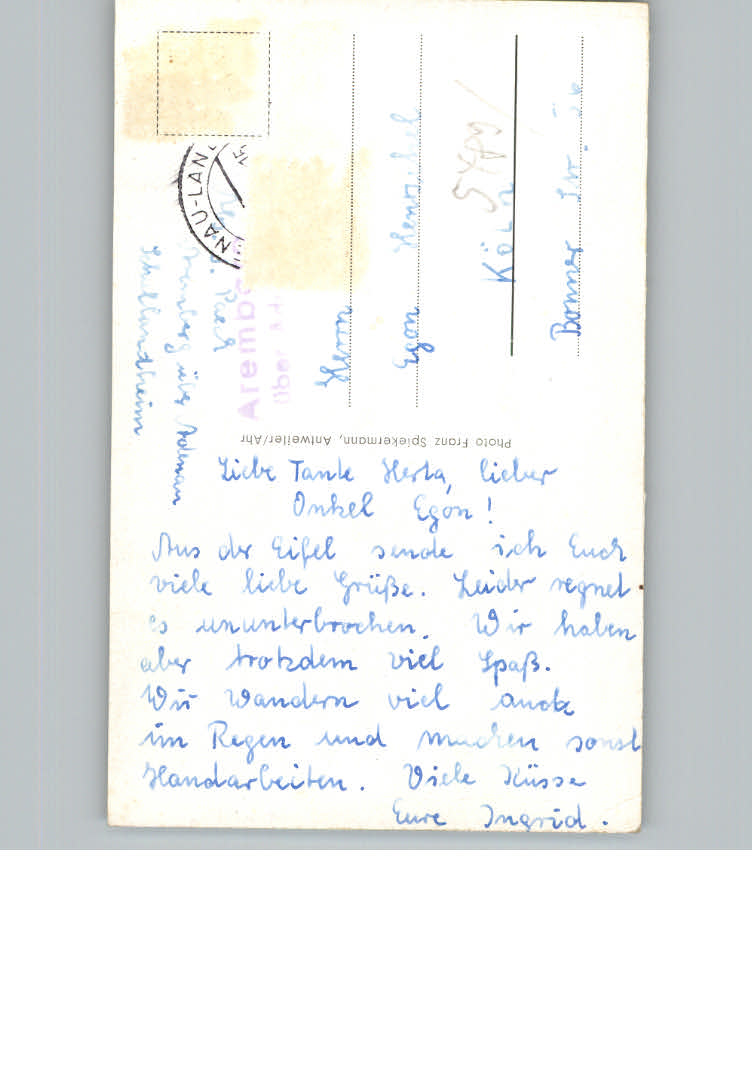 Liebe Tante Herta, lieber
Onkel Egon!
Aus der Eifel sende ich Euch
viele liebe Grüße. Leider regnet
es ununterbrochen. Wir haben
aber trotzdem viel Spaß.
Wir wandern viel auch
im Regen und machen sonst
Handarbeiten. Viele Küsse
Eure Ingrid.
Photo Franz Spiekermann, Antweiler/Ahr
Herrn
Egon
Köln
Bonner Str.
über Adenau
Schullandheim
Aremb
über
NAU-LAN